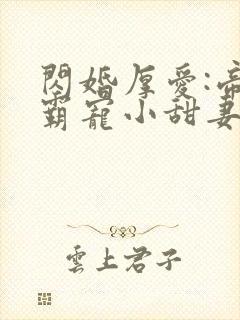 閃婚厚愛:帝
霸寵小甜妻
雲上君子